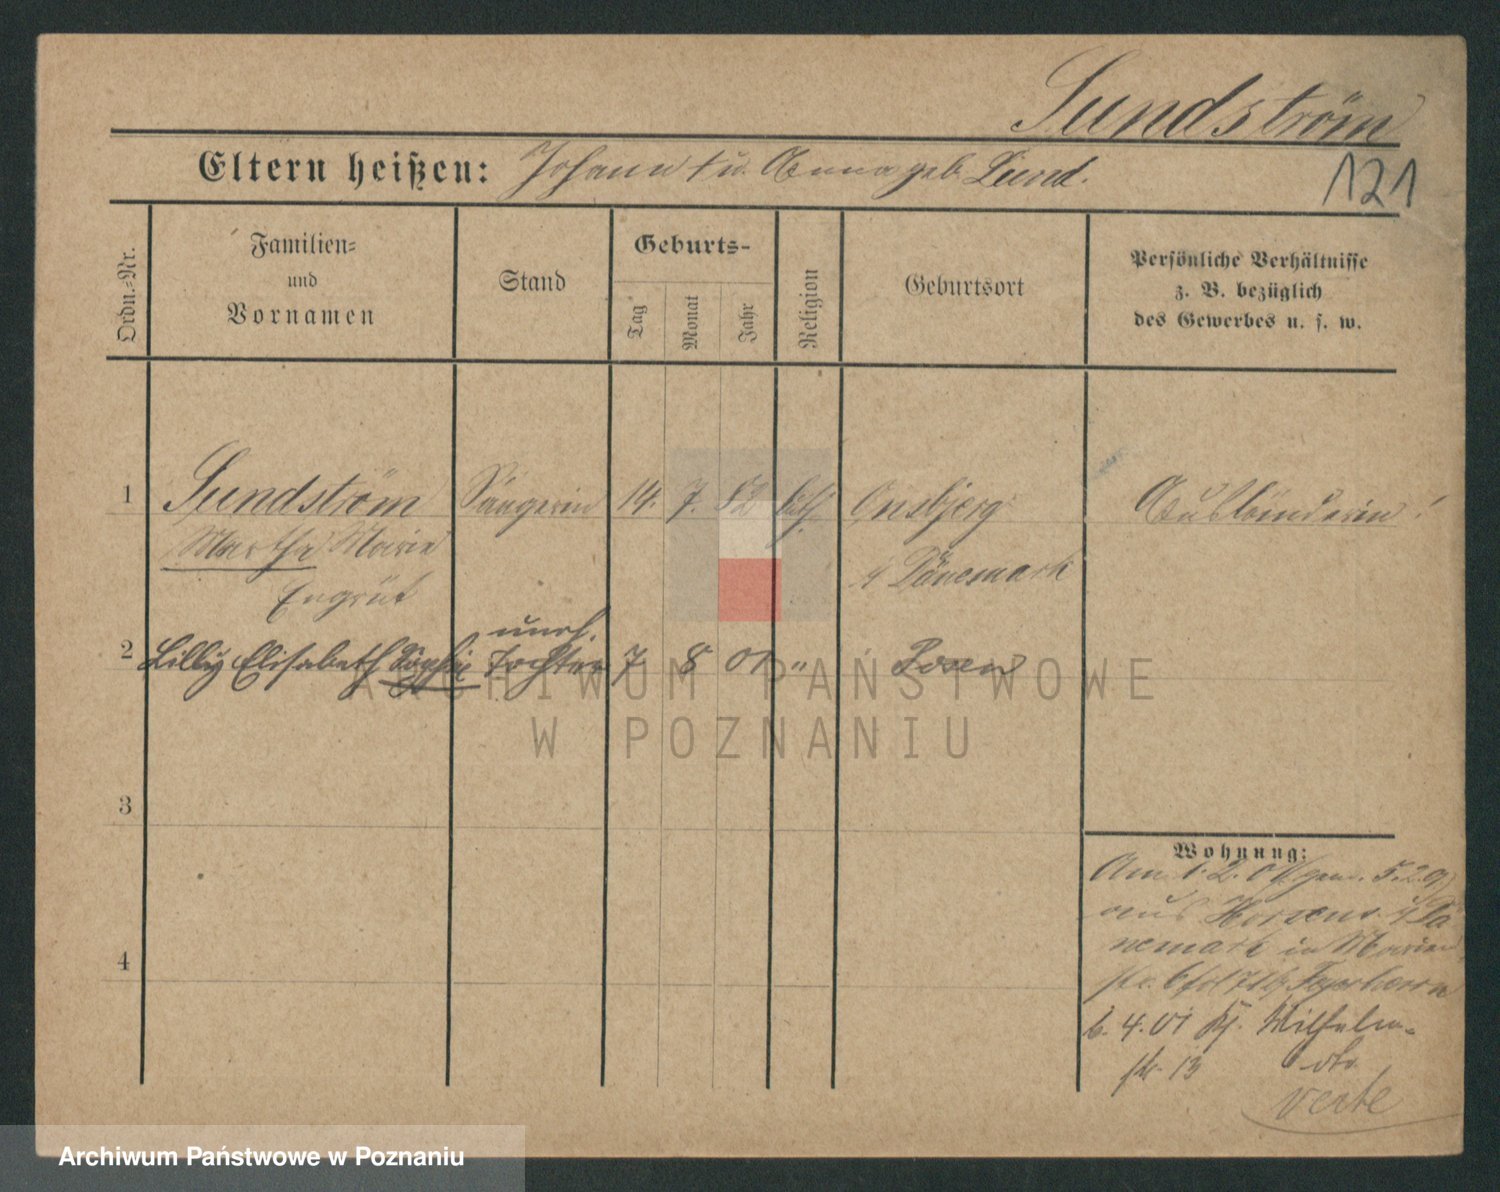 Sundström
Eltern heißen: Johann † u. Anna geb. Lund.
121
Ordn.-Nr.
Familien-
und
Vornamen
Stand
Geburts-
Tag
Monat
Jahr
Religion
Geburtsort
Persönliche Verhältnisse
z. B. bezüglich
des Gewerbes u. s. w.
1 Sundström Sängerin 14. 7. 82 luth. Onsbjerg Ausländerin!
Martha Marie
i/ Dänemark
uneh.
2 Lilly Elisabeth Sophie Tochter 7 8 01 " Posen
3
4
Wohnung:
Am 1. 2. 01 gem. 5.2.01
aus Horsens i/ Dä
nemark in Marien
b.
6. 4. 01 Wilhelm-
str. 13
verte
ARCHIWUM PAŃSTWOWE
W POZNANIU
Archiwum Państwowe w Poznaniu